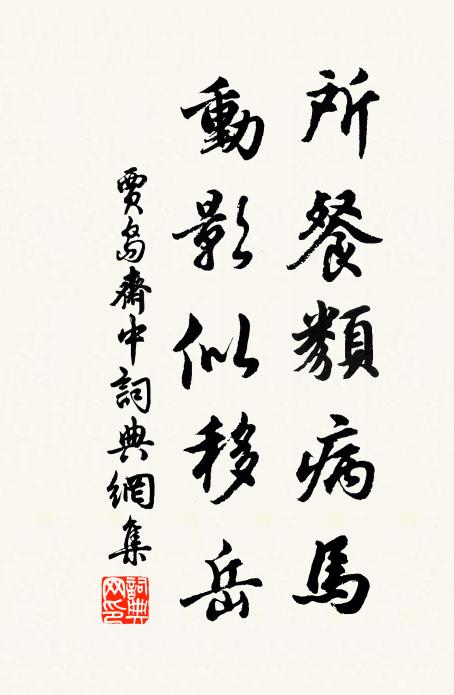 所餐類病馬
動影似移岳
賈島齋中詞典網集
詞典
网印